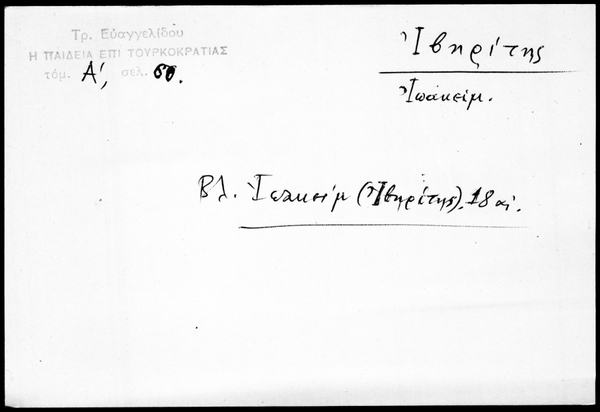 Τρ. Εὐαγγελίδου
Η ΠΑΙΔΕΙΑ ΕΠΙ ΤΟΥΡΚΟΚΡΑΤΙΑΣ
τόμ. Α', σελ. 60.
Ἰβηρίτης
Ἰωάκειμ.
Βλ. Ἰωακείμ (Ἰβηρίτης). 18 αἰ.